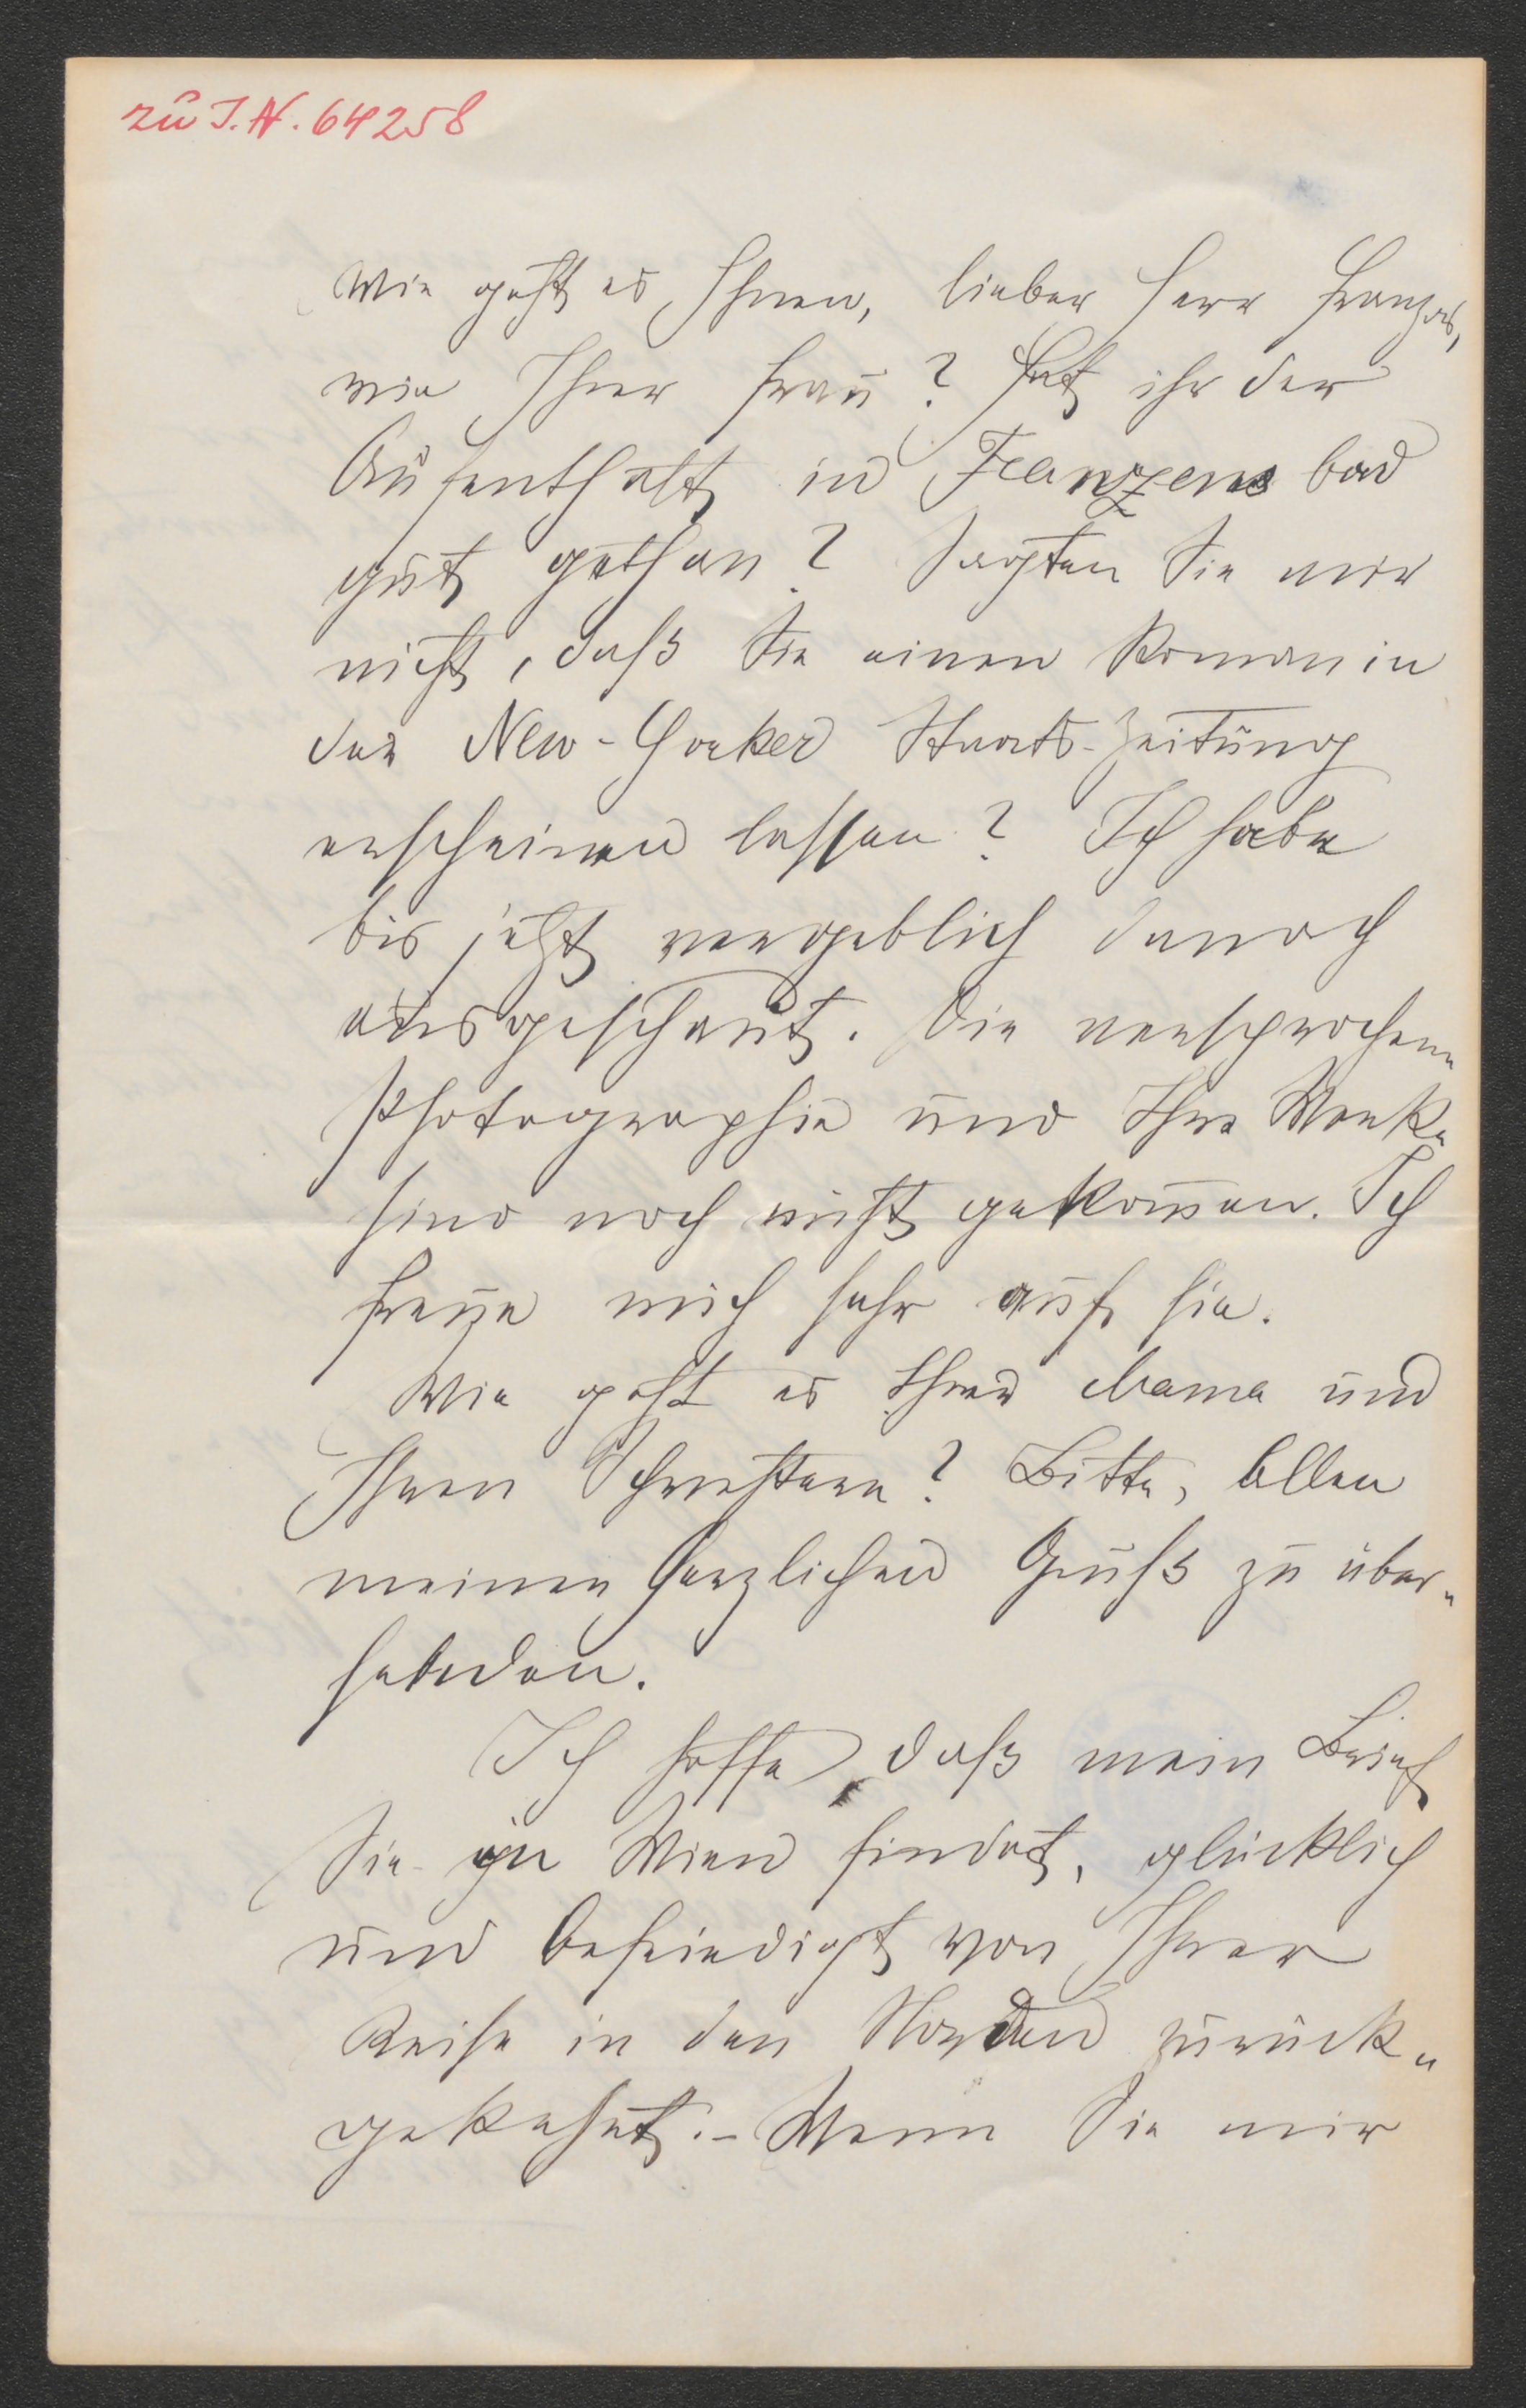 zu I.N. 64258
Wie geht es Ihnen, lieber Herr Franzos,
wie Ihrer Frau? Hat ihr der
Aufenthalt in Franzensbad
gut gethan? Sagten Sie mir
nicht, daß Sie einen Roman in
der New-Yorker Staats-Zeitung
erscheinen lassen? Ich habe
bis jetzt vergeblich danach
ausgeschaut. Die versprochene
Photographie und Ihre Werke
sind noch nicht gekommen. Ich
freue mich sehr auf sie.
Wie geht es Ihrer Mama und
Ihren Schwestern? Bitte, Allen
meinen herzlichen Gruß zu über-
senden.
Ich hoffe, daß mein Brief
Sie in Wien findet, glücklich
und befriedigt von Ihrer
Reise in den Norden zurück-
gekehrt. - Wenn Sie mir